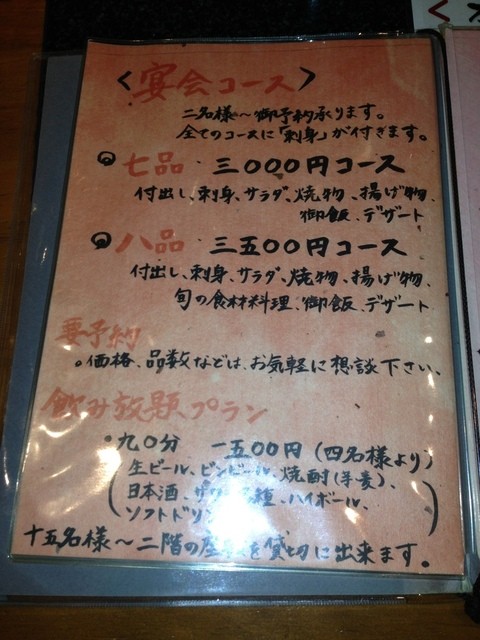 〈宴会コース〉
二名様〜御予約承ります。
全てのコースに「刺身」が付きます。
七品 三〇〇〇円コース
付出し、刺身、サラダ、焼物、揚げ物、
御飯、デザート
八品 三五〇〇円コース
付出し、刺身、サラダ、焼物、揚げ物、
旬の食材料理、御飯、デザート
要予約
。価格、品数などは、お気軽に想談下さい、
飲み放題プラン
・九〇分 一五〇〇円(四名様より)
(生ビール、ビンビール、焼酎(芋麦)、
日本酒、サワー 種、ハイボール、
ソフトドリ )
十五名様〜二階の座 を貸切に出来ます。